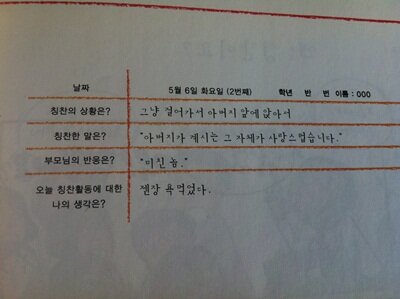 날짜 5월 6일 화요일 (2번째) 학년 반 번 이름 : 000
칭찬의 상황은? 그냥 걸어가서 아버지 앞에 앉아서
칭찬한 말은? "아버지가 계시는 그 자체가 사랑스럽습니다."
부모님의 반응은? "미친 놈."
오늘 칭찬활동에 대한 젠장 욕먹었다.
나의 생각은?